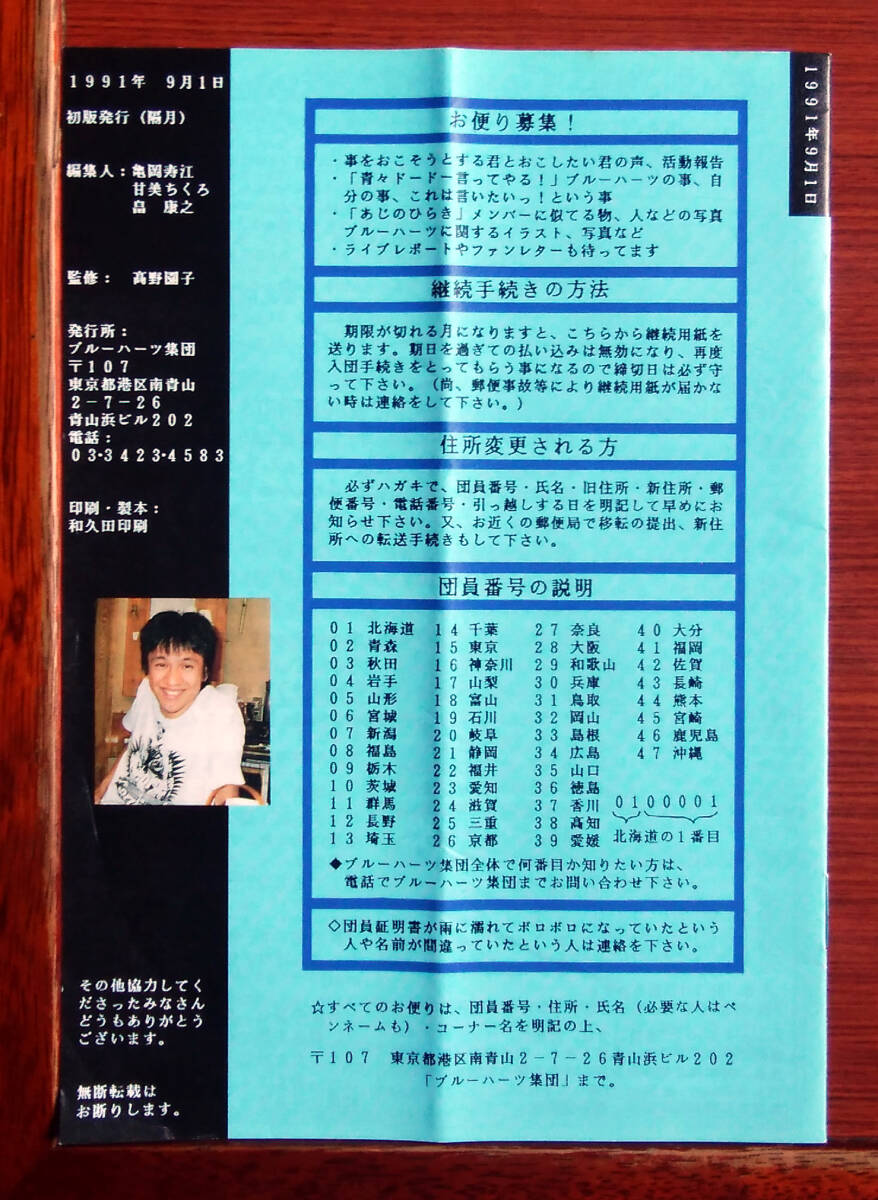 1991年 9月1日
初版発行(隔月)
編集人:亀岡寿江
甘美ちくろ
畠 康之
監修: 高野園子
発行所:
ブルーハーツ集団
〒107
東京都港区南青山
2-7-26
青山浜ビル202
電話:
03・3423・4583
印刷・製本:
和久田印刷
その他協力してく
ださったみなさん
どうもありがとう
ございます。
無断転載は
お断りします。
1991年9月1日
お便り募集!
・事をおこそうとする君とおこしたい君の声、活動報告
・「青々ドードー言ってやる!」ブルーハーツの事、自
分の事、これは言いたいっ!という事
・「あじのひらき」メンバーに似てる物、人などの写真
ブルーハーツに関するイラスト、写真など
・ライブレポートやファンレターも待ってます
継続手続きの方法
期限が切れる月になりますと、こちらから継続用紙を
送ります。期日を過ぎての払い込みは無効になり、再度
入団手続きをとってもらう事になるので締切日は必ず守
って下さい。(尚、郵便事故等により継続用紙が届かな
い時は連絡をして下さい。)
住所変更される方
必ずハガキで、団員番号・氏名・旧住所・新住所・郵
便番号・電話番号・引っ越しする日を明記して早めにお
知らせ下さい。又、お近くの郵便局で移転の提出、新住
所への転送手続きもして下さい。
団員番号の説明
01 北海道 14 千葉 27 奈良 40 大分
02 青森 15 東京 28 大阪 41 福岡
03 秋田 16 神奈川 29 和歌山 42 佐賀
04 岩手 17 山梨 30 兵庫 43 長崎
05 山形 18 富山 31 鳥取 44 熊本
06 宮城 19 石川 32 岡山 45 宮崎
07 新潟 20 岐阜 33 島根 46 鹿児島
08 福島 21 静岡 34 広島 47 沖縄
09 栃木 22 福井 35 山口
10 茨城 23 愛知 36 徳島
11 群馬 24 滋賀 37 香川 0100001
12 長野 25 三重 38 高知
13 埼玉 26 京都 39 愛媛 北海道の1番目
◆ブルーハーツ集団全体で何番目か知りたい方は、
電話でブルーハーツ集団までお問い合わせ下さい。
◇団員証明書が雨に濡れてボロボロになっていたという
人や名前が間違っていたという人は連絡を下さい。
☆すべてのお便りは、団員番号・住所・氏名(必要な人はペ
ンネームも)・コーナー名を明記の上、
〒107 東京都港区南青山2-7-26青山浜ビル202
「ブルーハーツ集団」まで。